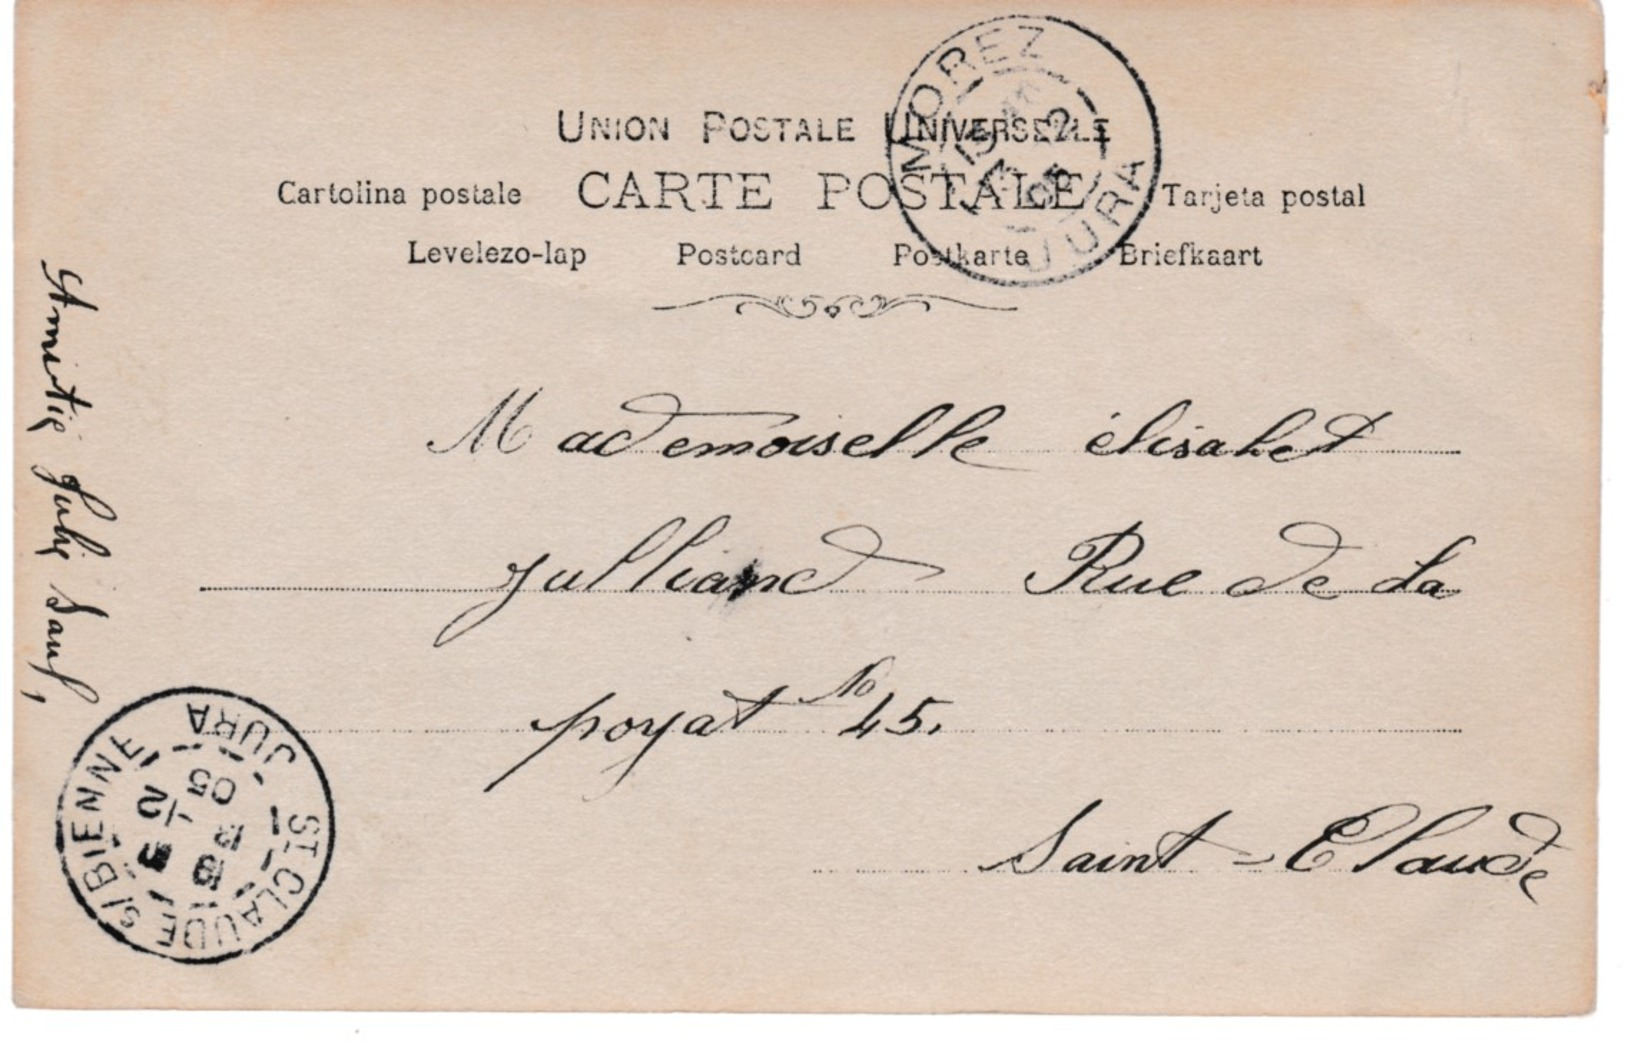 UNION POSTALE UNIVERSELLE
Cartolina postale CARTE POSTALE Tarjeta postal
Levelezo-lap Postcard Postkarte Briefkaart
MOREZ
JURA
Mademoiselle élisabet
Julliand Rue de La
poyat No 45.
Saint-Claude
Amitié Julie
ST CLAUDE S/ BIENNE
JURA
05